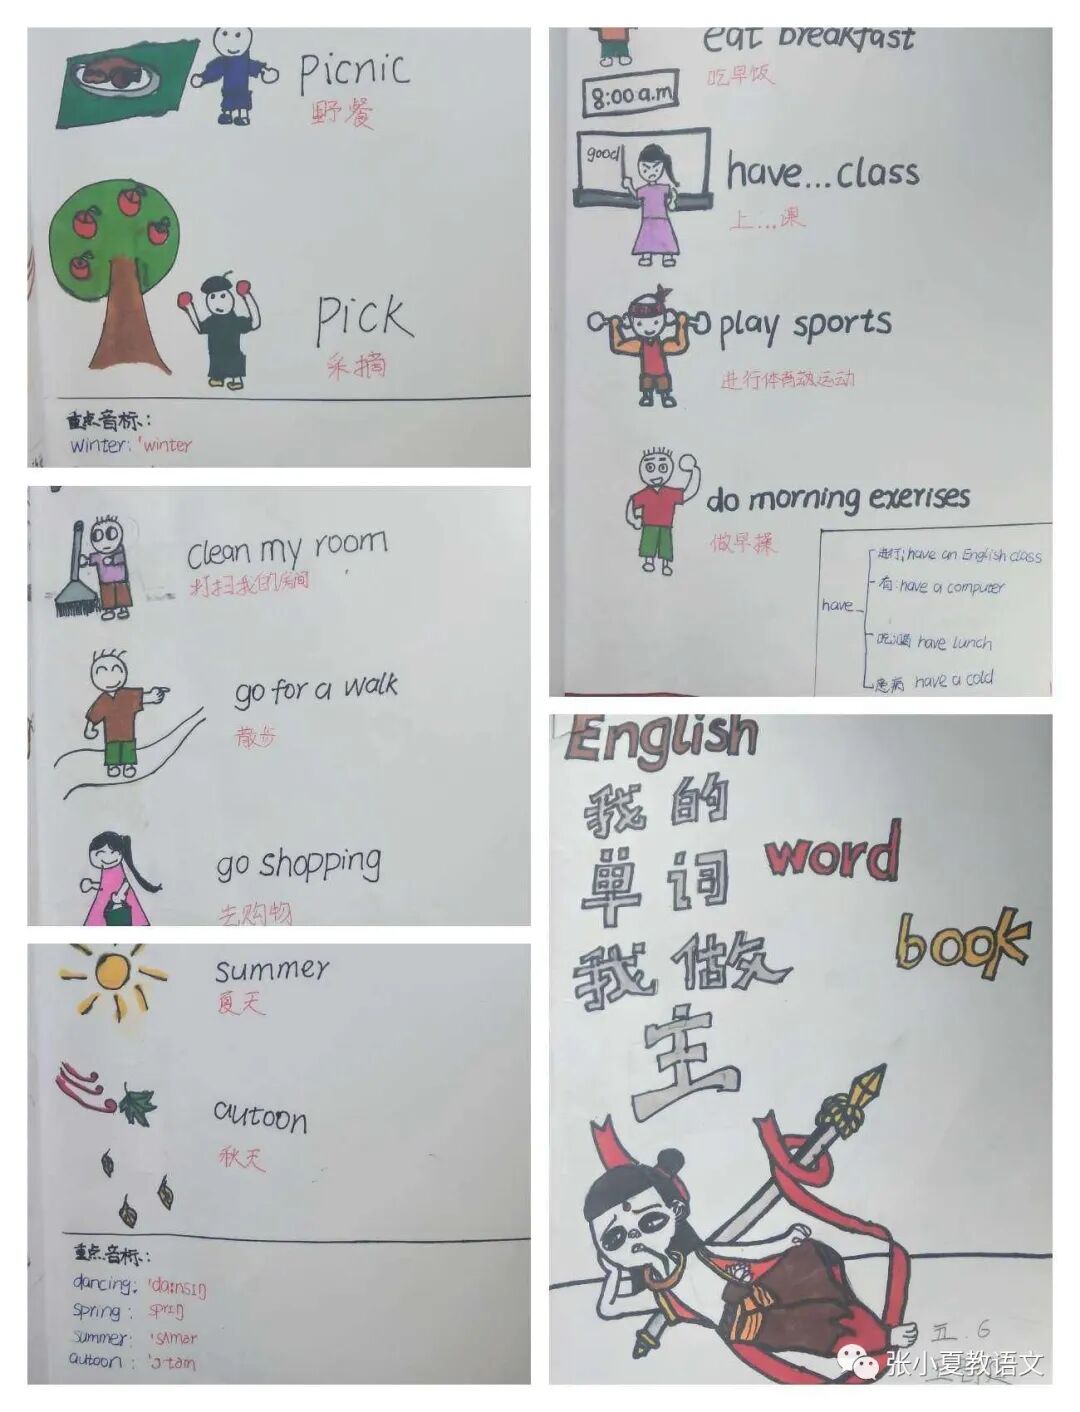 picnic
野餐
pick
采摘
重点音标:
winter: 'winter
clean my room
打扫我的房间
go for a walk
散步
go shopping
去购物
summer
夏天
autoon
秋天
重点音标:
dancing: 'da:nsɪŋ
spring: sprɪŋ
summer: 'sʌmər
autoon: 'ɔ·təm
eat breakfast
吃早饭
8:00 a.m
good
have...class
上...课
play sports
进行体育运动
do morning exerises
做早操
have
进行; have an English class
有: have a computer
吃喝 have lunch
患病 have a cold
English
我的
單词
word
book
我做
主
五.6
张小夏教语文